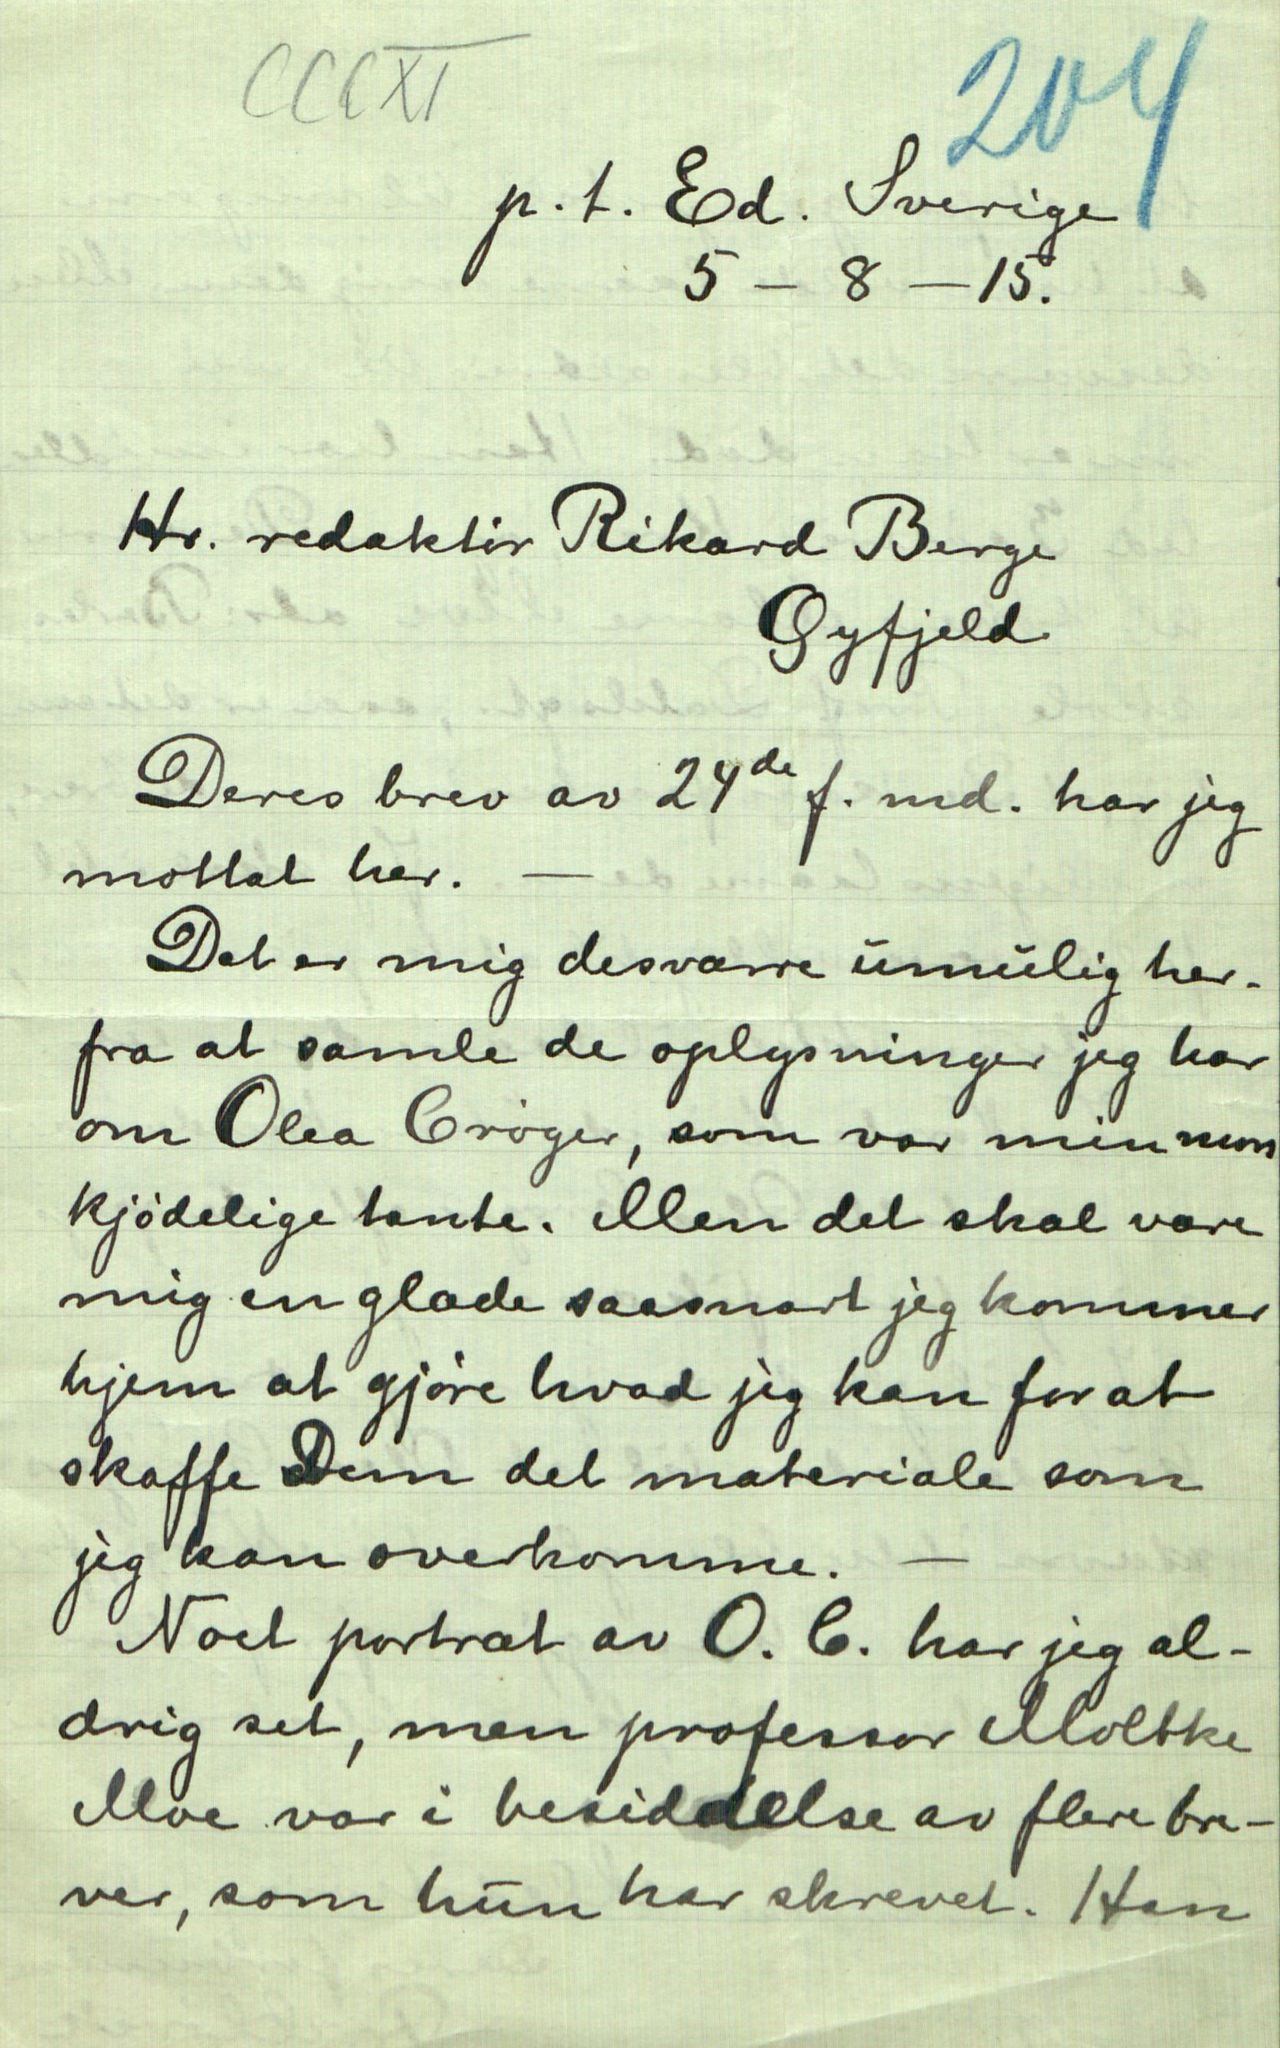 CCCXI
204
p.t. Ed. Sverige
5 – 8 – 15.
Hr. redaktör Rikard Berge
Øyfjeld
Deres brev av 24de f. md. har jeg
mottat her. —
Det er mig desværre umulig her-
fra at samle de oplysninger jeg har
om Olea Crøger, som var min mors
kjödelige tante. Men det skal være
mig en glæde saasnart jeg kommer
hjem at gjöre hvad jeg kan for at
skaffe Dem det materiale som
jeg kan overkomme. —
Noet portræt av O. C. har jeg al-
drig set, men professor Moltke
Moe var i besiddelse av flere bre-
ver, som hun har skrevet. Han